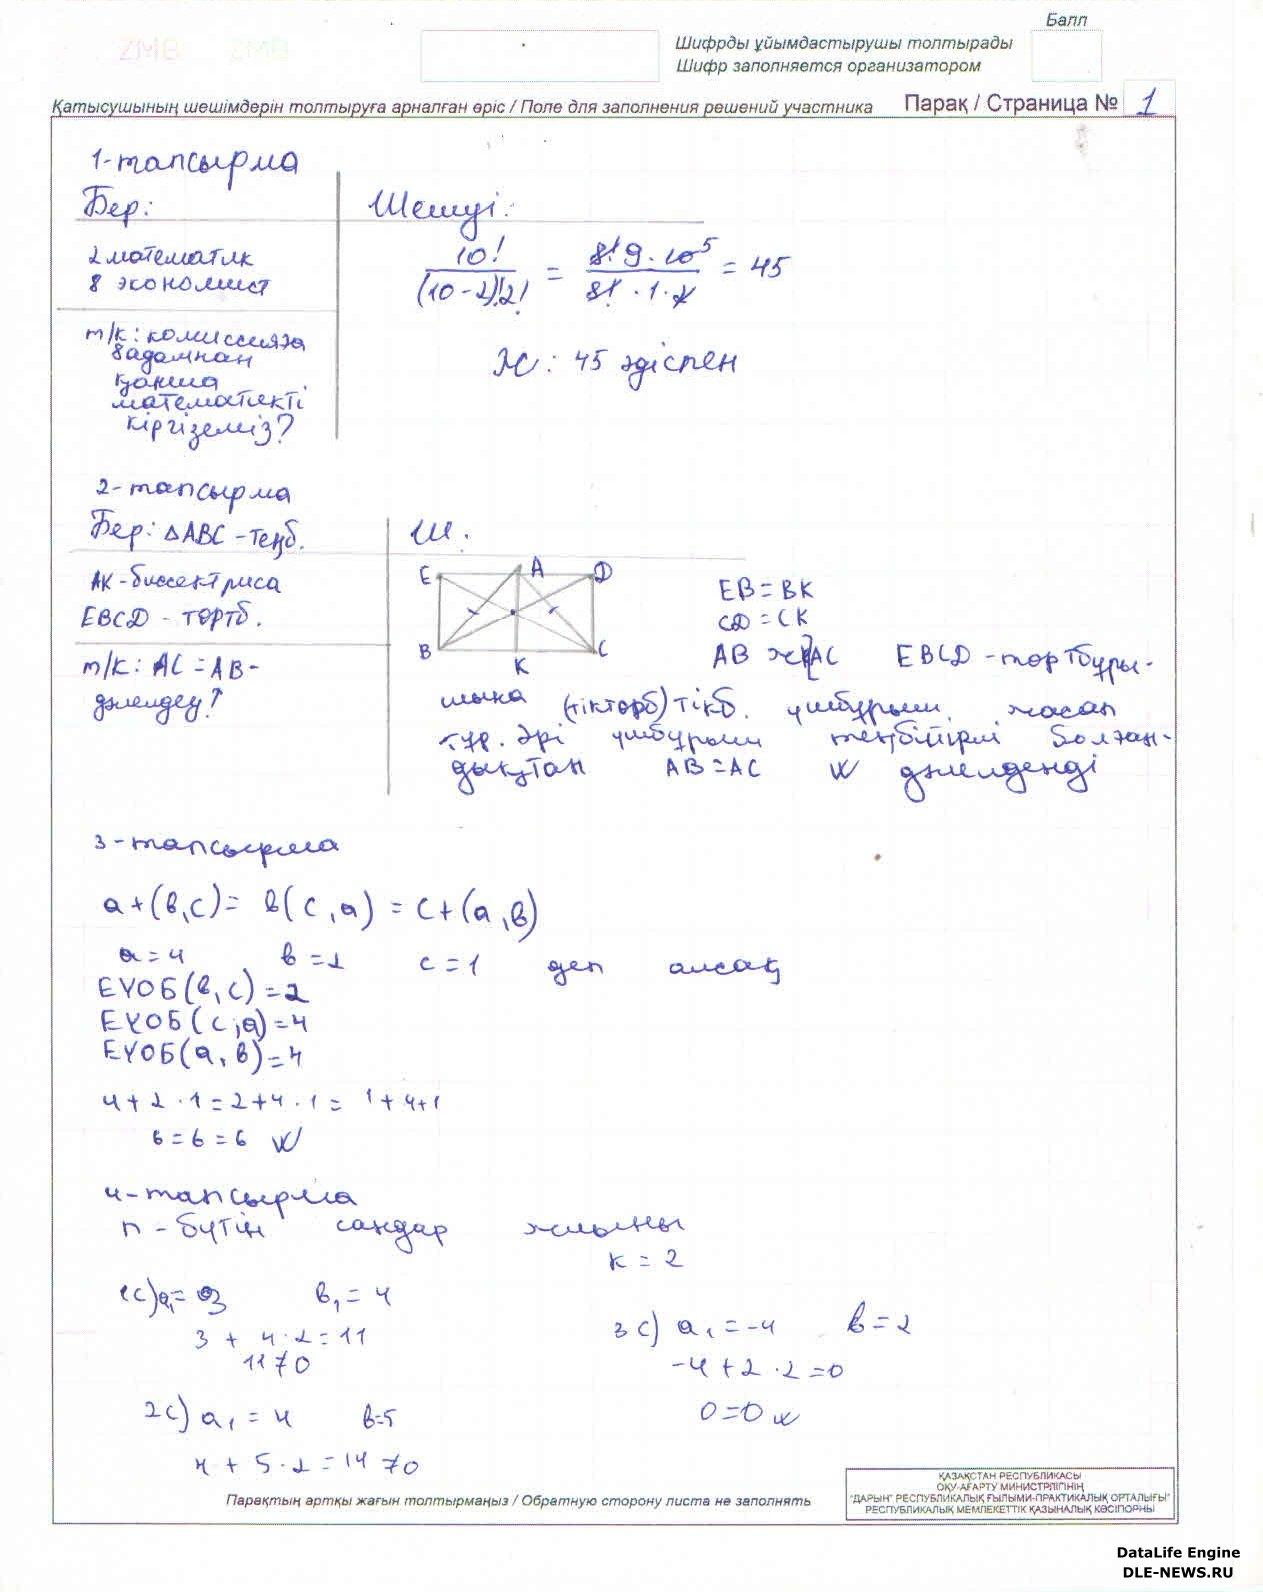 ZMB ZMB
Балл
Шифрды ұйымдастырушы толтырады
Шифр заполняется организатором
Қатысушының шешімдерін толтыруға арналған өріс / Поле для заполнения решений участника
Парақ / Страница № 1
1-тапсырма
Бер:
2 математик
8 экономист
т/к: комиссияға
8 адамнан
қанша
математикті
кіргіземіз?
Шешуі:
10! / (10-2)!2! = 8! 9 · 10 5 / 8! · 1 · 2 = 45
Ж: 45 әдіспен
2-тапсырма
Бер: △ABC - теңб.
AK - биссектриса
EBCD - төртб.
т/к: AC = AB -
дәлелдеу!
Ш:
E A D
B K C
EB = BK
CD = CK
AB ж/е AC EBCD - төртбұры-
шына (тіктөрб) тікб. үшбұрыш жасап
тұр. Әрі үшбұрыш теңбүйірлі болған-
дықтан AB = AC дәлелденді
3-тапсырма
a + (b, c) = b (c, a) = c + (a, b)
a = 4 b = 2 c = 1 деп алсақ
ЕҮОБ(b, c) = 2
ЕҮОБ(c, a) = 4
ЕҮОБ(a, b) = 4
4 + 2 · 1 = 2 + 4 · 1 = 1 + 4 + 1
6 = 6 = 6
4-тапсырма
n - бүтін сандар жиыны
k = 2
1с) a₁ = 3 b₁ = 4
3 + 4 · 2 = 11
11 ≠ 0
2с) a₁ = 4 b = 5
4 + 5 · 2 = 14 ≠ 0
3с) a₁ = -4 b = 2
-4 + 2 · 2 = 0
0 = 0
Парақтың артқы жағын толтырмаңыз / Обратную сторону листа не заполнять
ҚАЗАҚСТАН РЕСПУБЛИКАСЫ
ОҚУ-АҒАРТУ МИНИСТРЛІГІНІҢ
"ДАРЫН" РЕСПУБЛИКАЛЫҚ ҒЫЛЫМИ-ПРАКТИКАЛЫҚ ОРТАЛЫҒЫ"
РЕСПУБЛИКАЛЫҚ МЕМЛЕКЕТТІК ҚАЗЫНАЛЫҚ КӘСІПОРНЫ
DataLife Engine
DLE-NEWS.RU